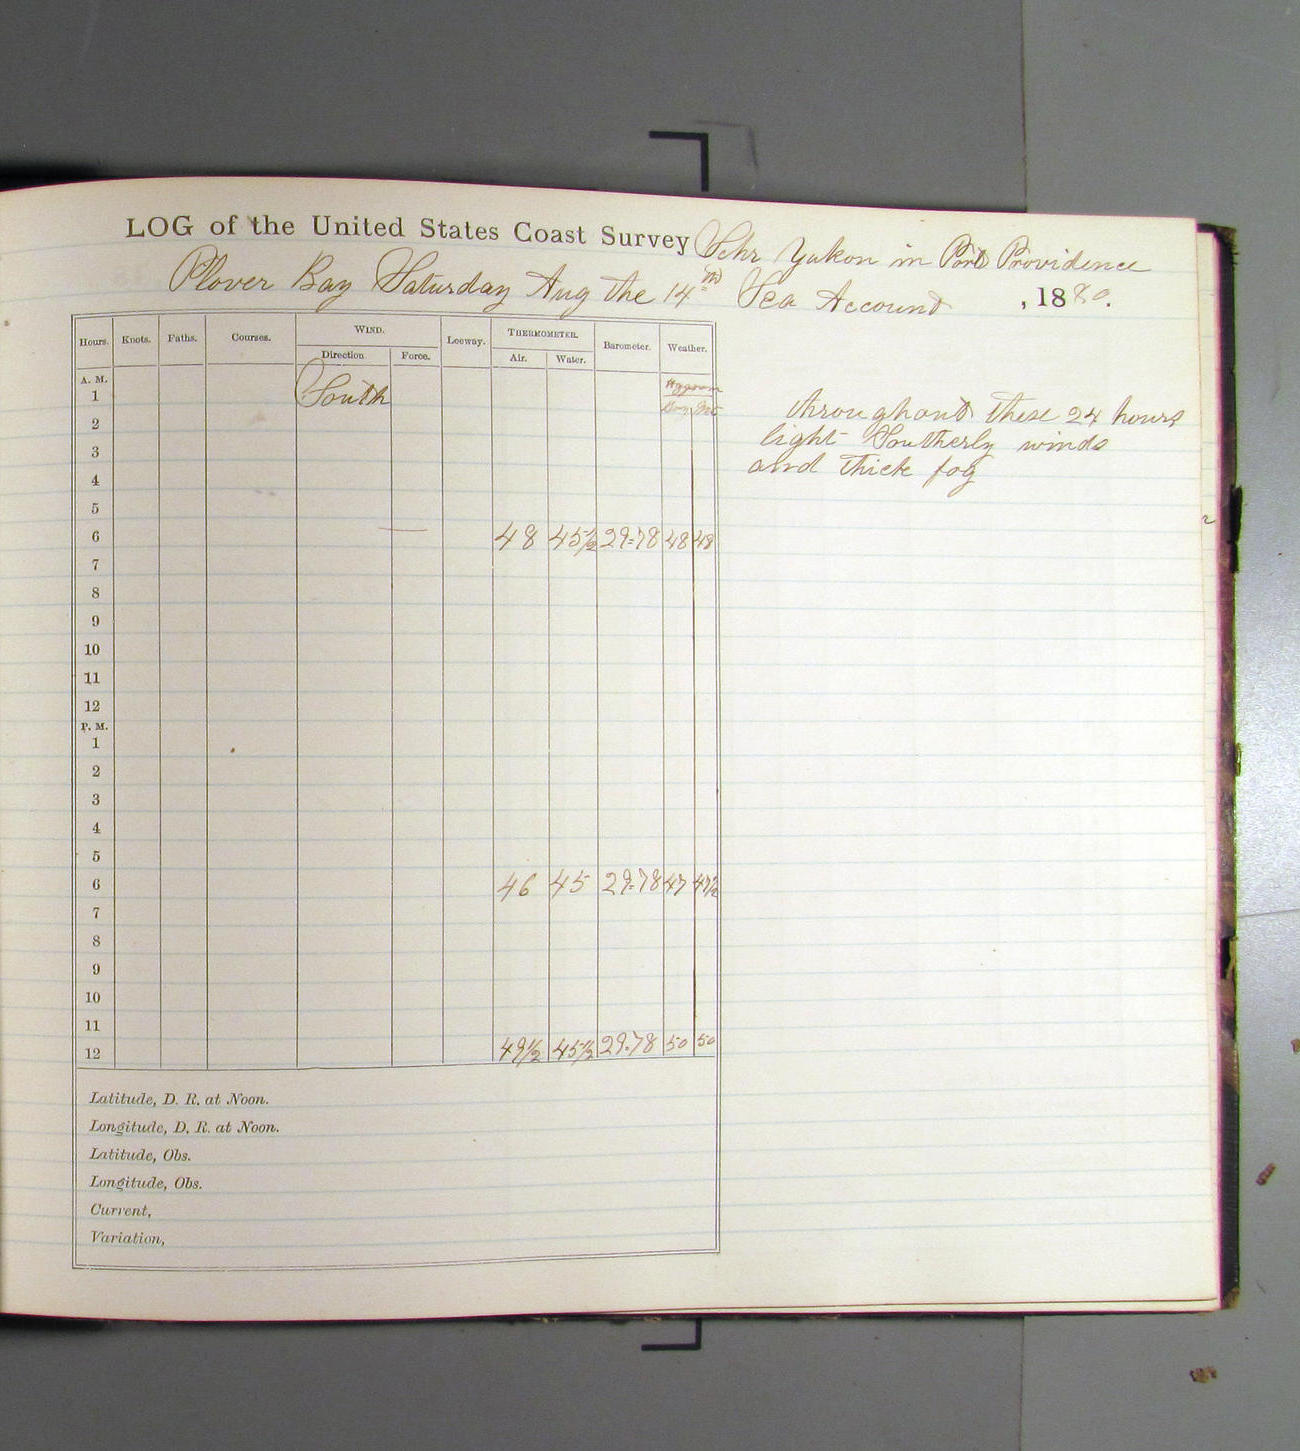 LOG of the United States Coast Survey Schr Yukon in Port Providence
Plover Bay Saturday Aug the 14th Sea Account , 1880.
Hours. Knots. Faths. Courses. WIND. Leeway. THERMOMETER. Barometer. Weather.
Direction Force. Air. Water.
A. M.
1 South
2
3
4
5
6 48 45½ 29.78 48 48
7
8
9
10
11
12
P. M.
1
2
3
4
5
6 46 45 29.78 47 47½
7
8
9
10
11
12 49½ 45½ 29.78 50 50
Latitude, D. R. at Noon.
Longitude, D. R. at Noon.
Latitude, Obs.
Longitude, Obs.
Current,
Variation,
throughout these 24 hours
light Southerly winds
and thick fog